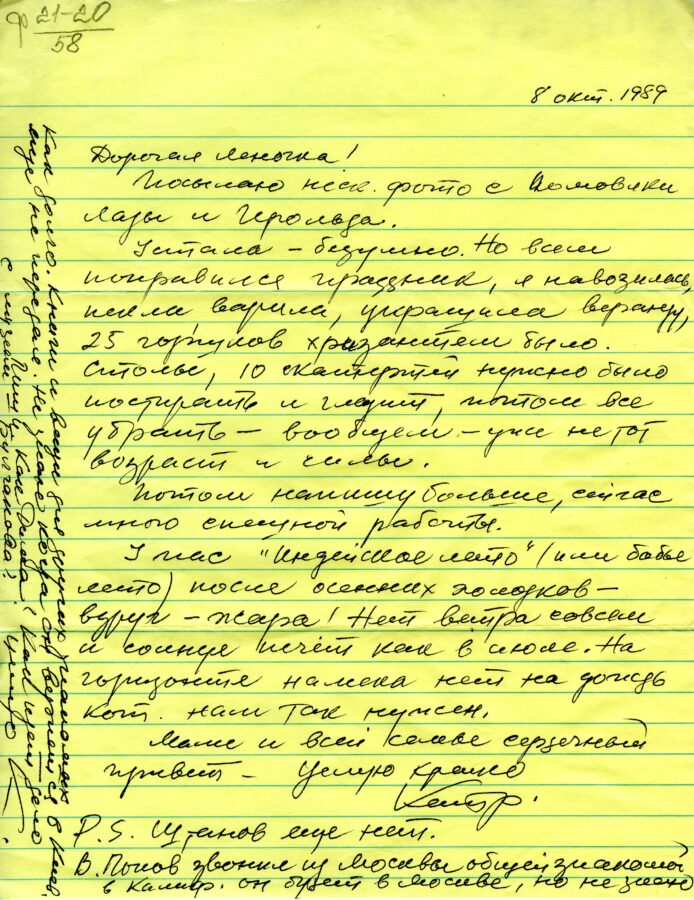 ф 21-20
58
8 окт. 1989
Дорогая Леночка!
Посылаю неск. фото с Помовки
Лады и Герольда.
Устала – безумно. Но всем
понравился праздник, я навозилась,
пекла, варила, украшила веранду,
25 горшков хризантем было.
Столы, 10 скатертей нужно было
постирать и гладит, потом все
убрать – вообщем – уж не тот
возраст и силы.
Потом напишу больше, сейчас
много спешной работы.
У нас "Индейское лето" (или бабье
лето) после осенних холодков –
вдруг – жара! Нет ветра совсем
и солнце печёт как в июле. На
горизонте намека нет на дождь
кот. нам так нужен.
Маме и всей семье сердечный
привет – Целую крепко
P.S. еще нет.
В. Попов звонил из Москвы общей знакомой
в Калиф. он будет в Москве, но не знаю
Как долго. Книги и вещи для других
еще не передал. Не знаю когда он вернется в Киев.
Пишу, Как Дима? Как идет дело
с музеем Булгакова? Целую К.